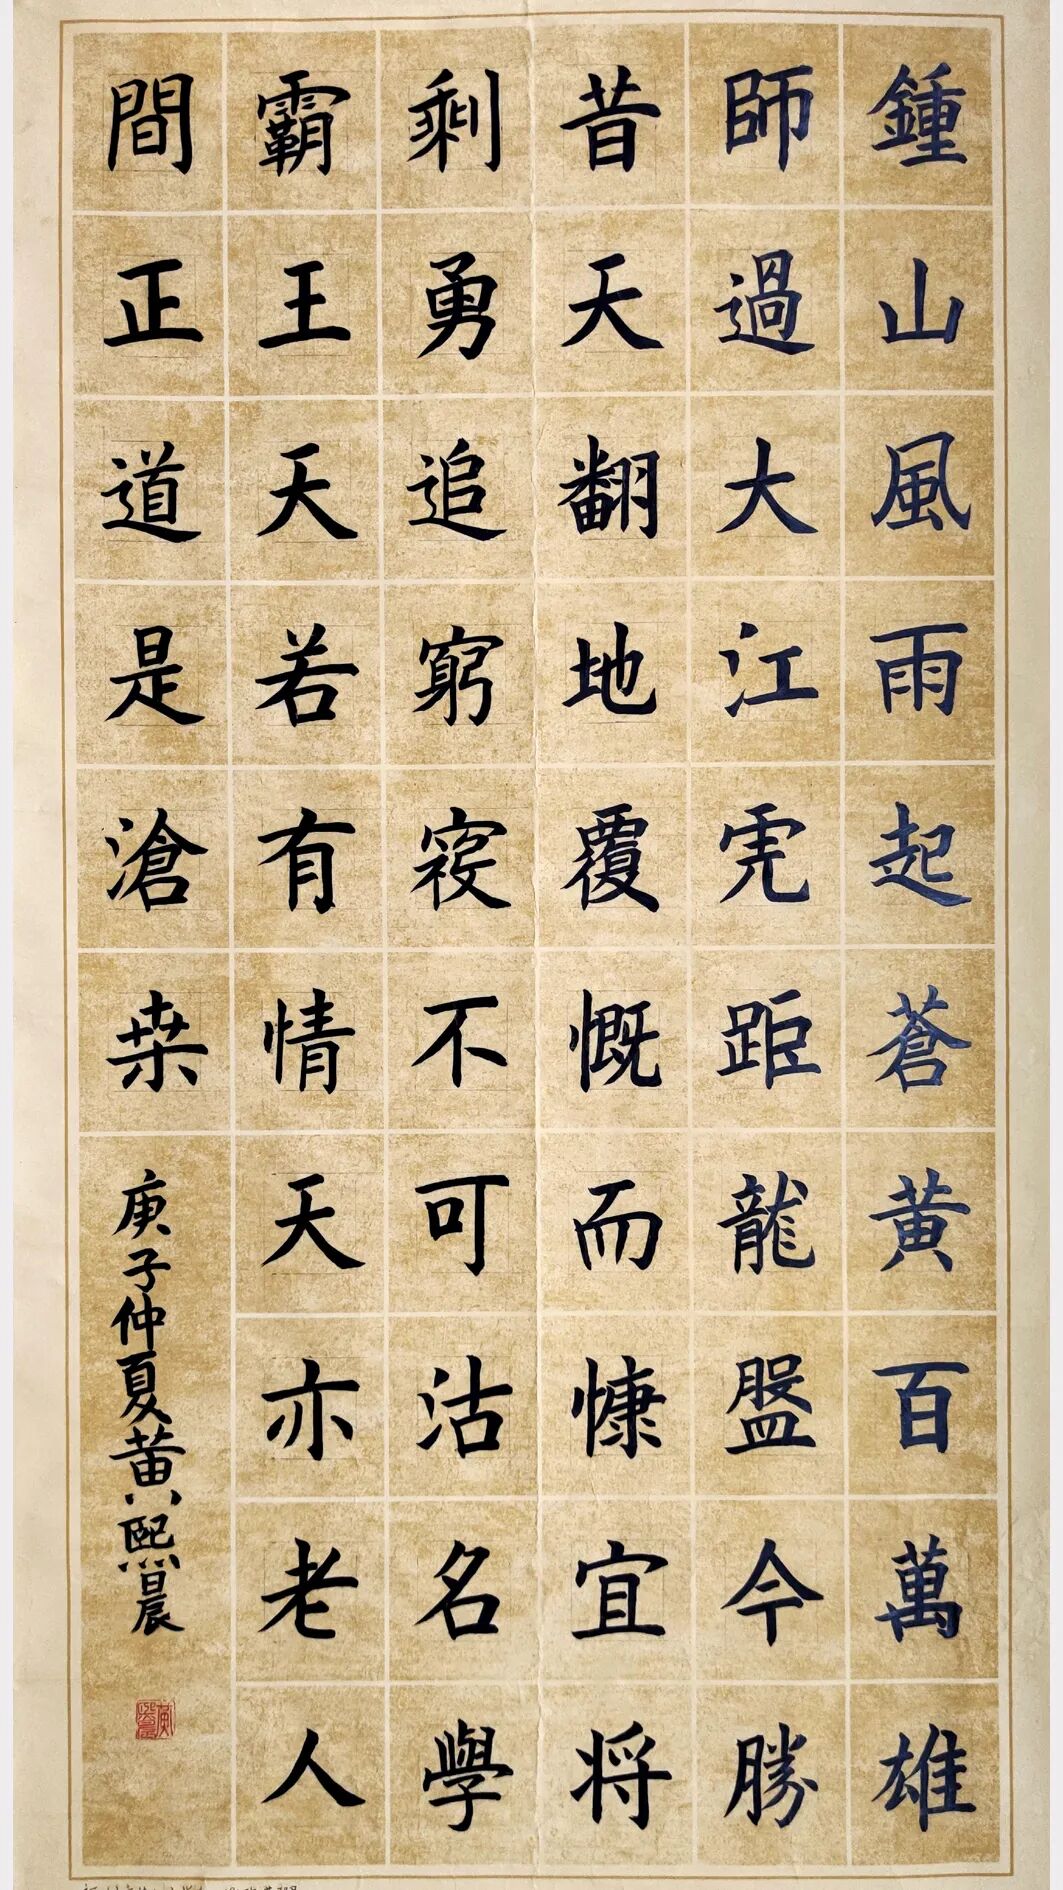 鍾山風雨起蒼黄百萬雄
師過大江虎距龍盤今勝
昔天翻地覆慨而慷宜将
剩勇追窮寇不可沽名學
霸王天若有情天亦老人
間正道是滄桒
庚子仲夏黄熙晨